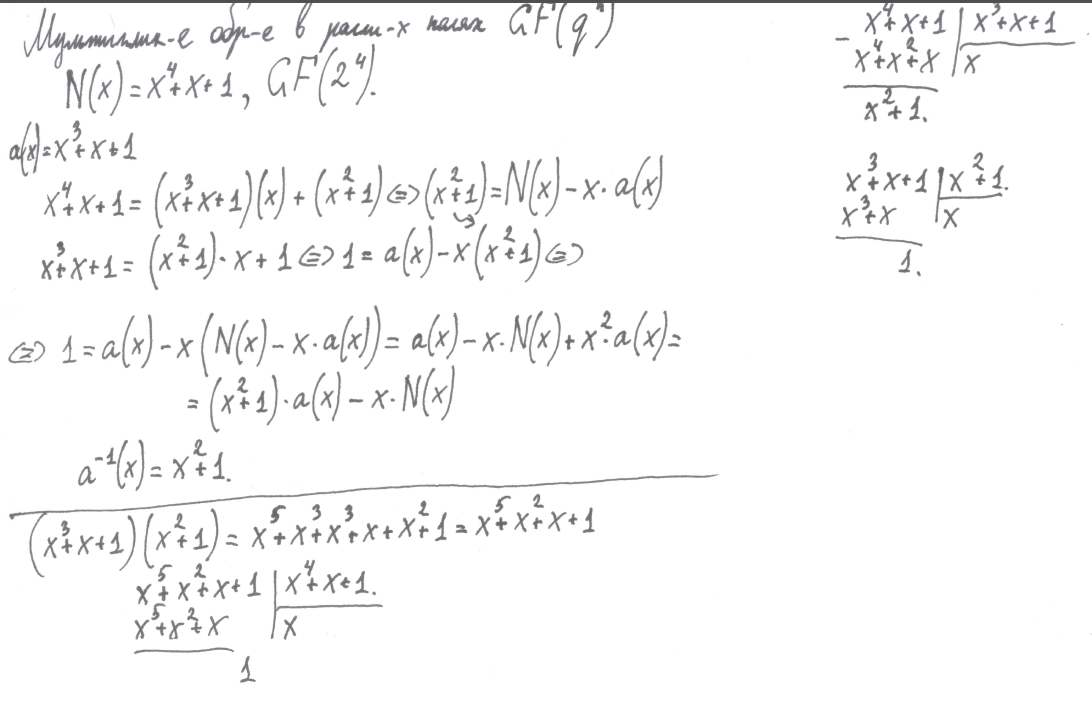 Мультиплик-е обр-е в расш-х полях GF(qⁿ)
N(x) = x⁴+x+1, GF(2⁴).
a(x)=x³+x+1
x⁴+x+1 = (x³+x+1)(x) + (x²+1) <=> (x²+1) = N(x) – x·a(x)
x³+x+1 = (x²+1)·x + 1 <=> 1 = a(x) – x(x²+1) <=>
<=> 1 = a(x) – x(N(x) – x·a(x)) = a(x) – x·N(x) + x²·a(x) =
= (x²+1)·a(x) – x·N(x)
a⁻¹(x) = x²+1.
(x³+x+1)(x²+1) = x⁵+x³+x³+x+x²+1 = x⁵+x²+x+1
x⁵+x²+x+1 | x⁴+x+1.
x⁵+x²+x | x
1
– x⁴+x+1 | x³+x+1
x⁴+x²+x | x
x²+1.
x³+x+1 | x²+1.
x³+x | x
1.